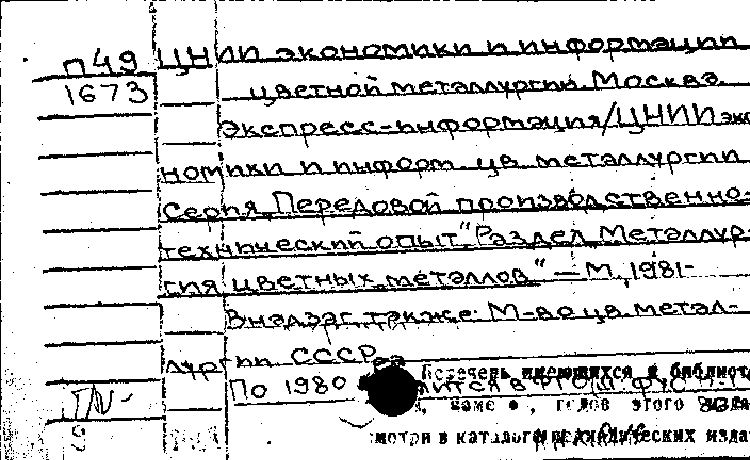 П49 ЦНИИ экономики и информации
1673 цветной металлургии. Москва
Экспресс-информация/ЦНИИ эко
номики и информ. цв. металлургии
Серия „Передовой производственно-
технический опыт" Раздел „Металлур-
гия цветных металлов" – М., 1981-
В надзаг. также: М-во цв. метал-
лургии СССР
Перечень имеющихся в библиот
По 1980
годов этого изда
смотри в каталоге периодических изда